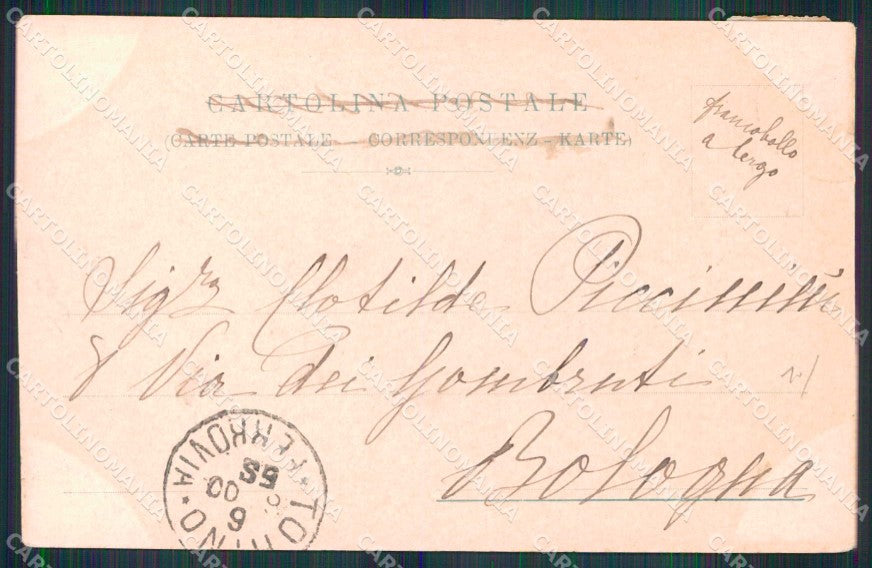 CARTOLINA POSTALE
(CARTE POSTALE - CORRESPONDENZ-KARTE)
francobollo
a tergo
Sigra Clotilde Piccinini
8 Via Dei Gombruti
Bologna
TORINO * FERROVIA *
6
00
5S
CARTOLINOMANIA